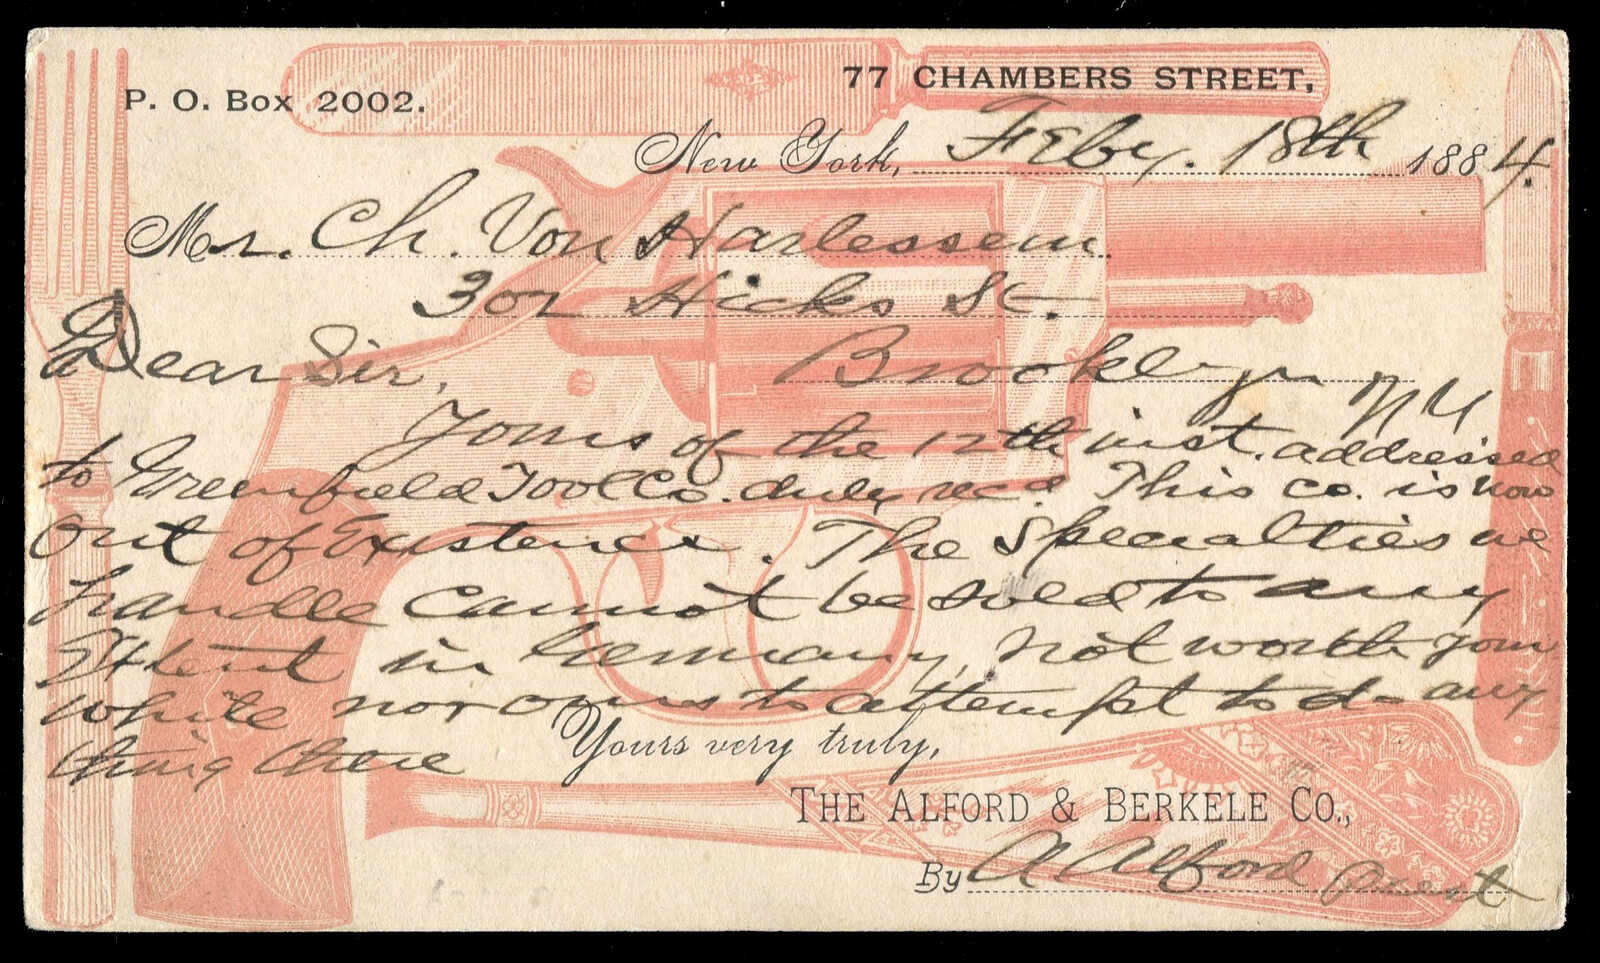 P. O. Box 2002.
77 CHAMBERS STREET,
New York, Feby. 18th 1884.
Mr. Ch. Von Harlessem.
302 Hicks St.
Dear Sir,
Brooklyn NY
Yours of the 12th inst. addressed
to Greenfield Tool Co. duly rec'd This co. is now
out of Existence. The Specialties we
handle cannot be sold to any
Extent in Germany, not worth your
while nor ours to attempt to do any
thing there
Yours very truly,
THE ALFORD & BERKELE CO.,
By A Alford Prest